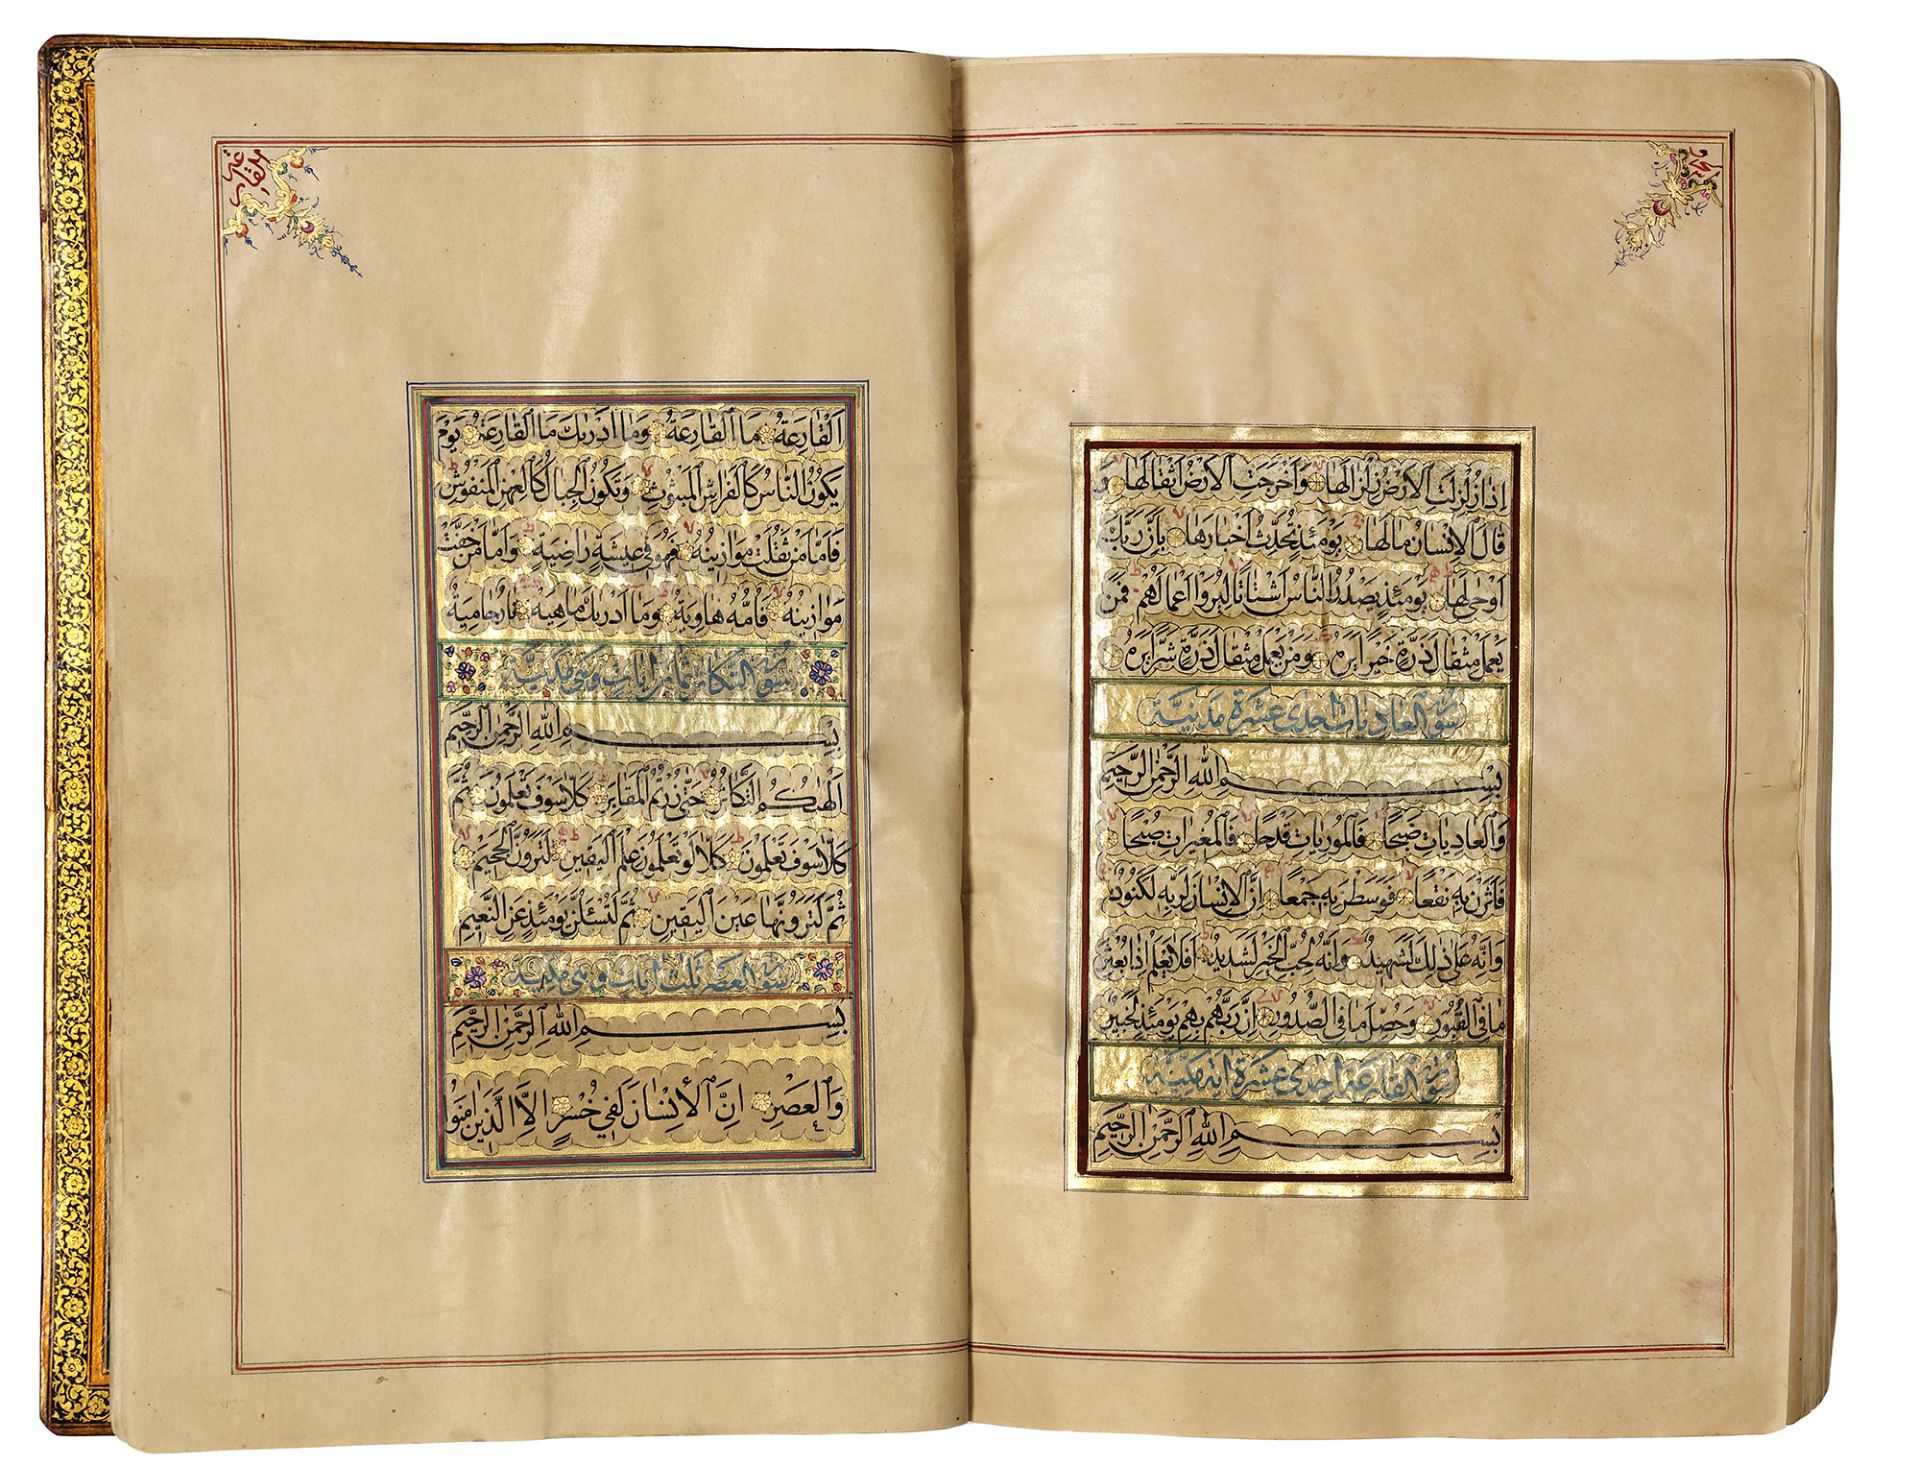 اِذا زُلْزِلَتِ الْاَرْضُ زِلْزالَها وَاَخْرَجَتِ الْاَرْضُ اَثْقالَها وَ
قالَ الْاِنْسانُ مالَها يَوْمَئِذٍ تُحَدِّثُ اَخْبارَها بِاَنَّ رَبَّكَ
اَوْحى لَها يَوْمَئِذٍ يَصْدُرُ النّاسُ اَشْتاتًا لِيُرَوْا اَعْمالَهُمْ فَمَنْ
يَعْمَلْ مِثْقالَ ذَرَّةٍ خَيْرًا يَرَهُ وَمَنْ يَعْمَلْ مِثْقالَ ذَرَّةٍ شَرًّا يَرَهُ
سورة العاديات احدى عشرة مدنية
بِسْمِ اللهِ الرَّحْمٰنِ الرَّحيمِ
وَالْعادِياتِ ضَبْحًا فَالْمُورِياتِ قَدْحًا فَالْمُغيراتِ صُبْحًا
فَاَثَرْنَ بِهِ نَقْعًا فَوَسَطْنَ بِهِ جَمْعًا اِنَّ الْاِنْسانَ لِرَبِّهِ لَكَنُودٌ
وَاِنَّهُ عَلى ذٰلِكَ لَشَهيدٌ وَاِنَّهُ لِحُبِّ الْخَيْرِ لَشَديدٌ اَفَلا يَعْلَمُ اِذا بُعْثِرَ
ما فِي الْقُبُورِ وَحُصِّلَ ما فِي الصُّدُورِ اِنَّ رَبَّهُمْ بِهِمْ يَوْمَئِذٍ لَخَبيرٌ
سورة القارعة احدى عشرة اية مكية
بِسْمِ اللهِ الرَّحْمٰنِ الرَّحيمِ
القارعة
اَلْقارِعَةُ مَا الْقارِعَةُ وَما اَدْرٰيكَ مَا الْقارِعَةُ يَوْمَ
يَكُونُ النّاسُ كَالْفَراشِ الْمَبْثُوثِ وَتَكُونُ الْجِبالُ كَالْعِهْنِ الْمَنْفُوشِ
فَاَمّا مَنْ ثَقُلَتْ مَوازينُهُ فَهُوَ في عيشَةٍ راضِيَةٍ وَاَمّا مَنْ خَفَّتْ
مَوازينُهُ فَاُمُّهُ هاوِيَةٌ وَما اَدْرٰيكَ ماهِيَهْ نارٌ حامِيَةٌ
سورة التكاثر ثمان ايات وهى مكية
بِسْمِ اللهِ الرَّحْمٰنِ الرَّحيمِ
اَلْهٰيكُمُ التَّكاثُرُ حَتّى زُرْتُمُ الْمَقابِرَ كَلّا سَوْفَ تَعْلَمُونَ ثُمَّ
كَلّا سَوْفَ تَعْلَمُونَ كَلّا لَوْ تَعْلَمُونَ عِلْمَ الْيَقينِ لَتَرَوُنَّ الْجَحيمَ
ثُمَّ لَتَرَوُنَّها عَيْنَ الْيَقينِ ثُمَّ لَتُسْئَلُنَّ يَوْمَئِذٍ عَنِ النَّعيمِ
سورة العصر ثلث ايات وهى مكية
بِسْمِ اللهِ الرَّحْمٰنِ الرَّحيمِ
وَالْعَصْرِ اِنَّ الْاِنْسانَ لَفي خُسْرٍ اِلَّا الَّذينَ اٰمَنُوا